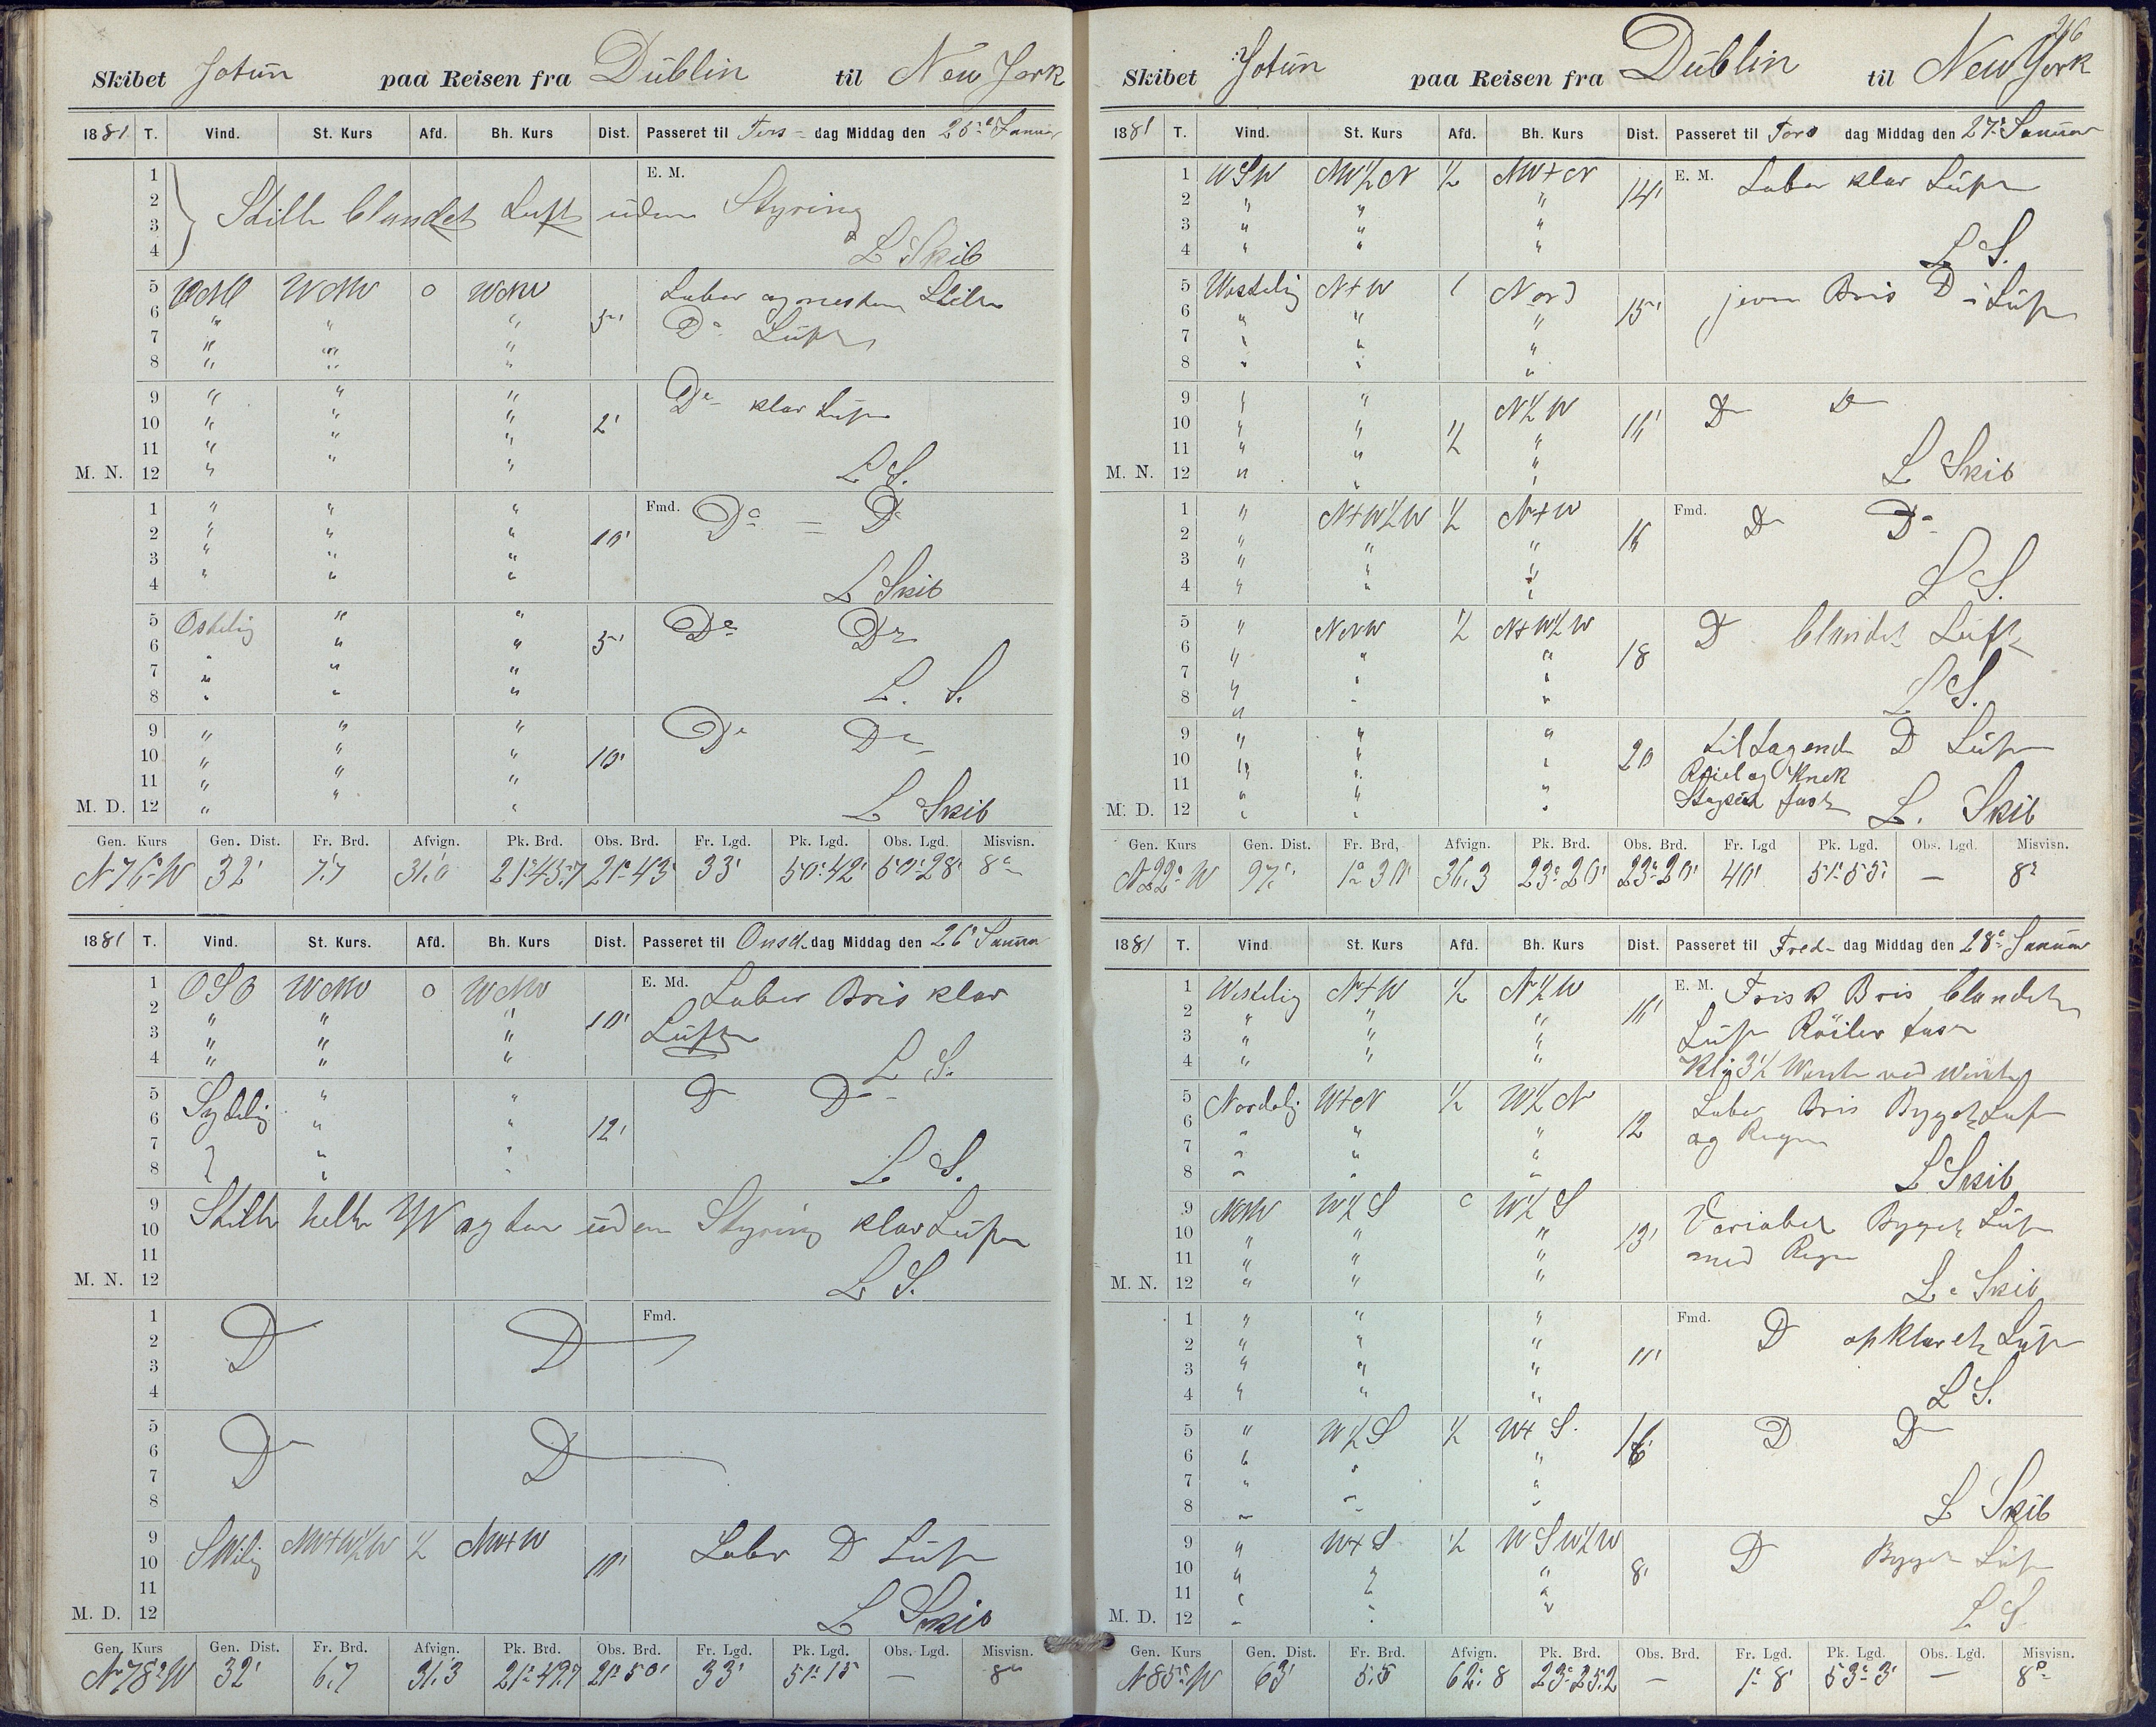 Skibet Jotun paa Reisen fra Dublin til New York
1881 T. Vind. St. Kurs Afd. Bh. Kurs Dist. Passeret til Tirs- dag Middag den 25de Januar
1 E. M.
2 Stille blandet Luft uden Styring
3
4 L Skib
5 WNW 0 WNW Laber og næsten Stille
6 " " " 5' Do Luft
7 " " "
8 " " "
9 " " " Do klar Luft
10 " " " 2'
11 " " "
M. N. 12 " " " L S.
1 " " " Fmd. Do = Do
2 " " " 10'
3 " " "
4 " " " L Skib
5 Ostelig " " Do Do
6 " " 5'
7 " " "
8 " " " L. S.
9 " " " Do Do
10 " " " 10'
11 " " "
M. D. 12 " " " L Skib
Gen. Kurs Gen. Dist. Fr. Brd. Afvign. Pk. Brd. Obs. Brd. Fr. Lgd. Pk. Lgd. Obs. Lgd. Misvisn.
N 76° W 32' 7.7 31.0 21°43.7 21°43' 33' 50°42' 50°28' 8°
1881 T. Vind. St. Kurs. Afd. Bh. Kurs Dist. Passeret til Onsd- dag Middag den 26de Januar
1 OSO WNW 0 WNW E. Md. Laber Bris klar
2 " " " 10' Luft
3 " " "
4 " " " L S.
5 Sydelig " " Do Do
6 " " 12'
7 " "
8 " " L S.
9 Stille hele Wagten uden Styring klar Luft
10
11
M. N. 12 L S.
1 Fmd.
2 D D
3
4
5
6 Do D
7
8
9 SWlig NW+W½W ½ NW+W Laber D Luft
10 10'
11
M. D. 12 L Skib
Gen. Kurs Gen. Dist. Fr. Brd. Afvign. Pk. Brd. Obs. Brd. Fr. Lgd. Pk. Lgd. Obs. Lgd. Misvisn.
N 78° W 32' 6.7 31.3 21°49.7 21°50' 33' 51°15 — 8°
Skibet Jotun paa Reisen fra Dublin til New York
1881 T. Vind. St. Kurs Afd. Bh. Kurs Dist. Passeret til Tors dag Middag den 27de Januar
1 WSW NW½N ½ NW+N E. M. Laber klar Luft
2 " " " 14'
3 " " "
4 " " " L S.
5 Westelig N+W 1 Nord jevn Bris D Luft
6 " " " 15'
7 " " "
8 " " "
9 " " N½W D D
10 " " ½ "
11 " " "
M. N. 12 " " " L Skib
1 " N+W½W ½ N+W Fmd. D D
2 " " "
3 " " "
4 " " " L S.
5 " NNW ½ N+W½W D blandet Luft
6 " " " 18
7 " " "
8 " " L S.
9 " " " tiltagende D Luft
10 " " " 20 Røiel og Knek
11 " " " Stagseil fast
M. D. 12 " " " L. Skib
Gen. Kurs Gen. Dist. Fr. Brd, Afvign. Pk. Brd. Obs. Brd. Fr. Lgd Pk. Lgd. Obs. Lgd. Misvisn.
N 22° W 97' 1°30' 36.3 23°20' 23°20' 40' 51°55' — 8°
1881 T. Vind St. Kurs. Afd. Bh. Kurs Dist. Passeret til Fred- dag Middag den 28de Januar
1 Westelig N+W ½ N½W E. M. Frisk Bris blandet
2 " " " Luft Röiler fast
3 " " "
4 " " " Kl 3½
5 Nordelig W+N ½ W½N Laber Bris Byget Luft
6 " " " 12 og Regn
7 " " "
8 " " " L Skib
9 NNW W½S 0 W½S Variabel Byget Luft
10 " " " 13' med Regn
11 " " "
M. N. 12 " " " L. Skib
1 " " " Fmd. D opklaret Luft
2 " " " 11'
3 " " "
4 " " " L S.
5 " W½S ½ W+S. D D
6 " " " 16'
7 " "
8 " " L Skib
9 " W+S ½ WSW½W D Byget Luft
10 " " " 8'
11 " " "
M. D. 12 " " " L S.
Gen. Kurs Gen. Dist. Fr. Brd. Afvign. Pk. Brd. Obs. Brd. Fr. Lgd. Pk. Lgd. Obs. Lgd. Misvisn.
N 85° W 63' 5.5 62.8 23°25.2 — 1°8' 53°3' — 8°